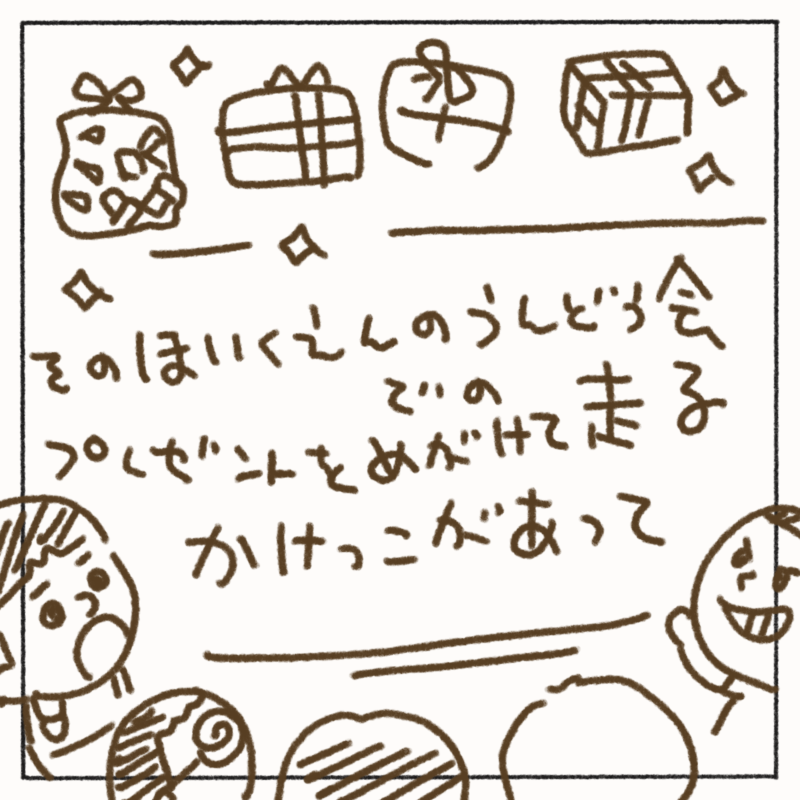 そのほいくえんのうんどう会
での
プレゼントをめがけて走る
かけっこがあって